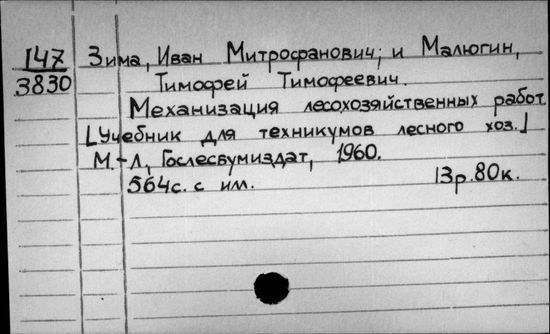 147 Зима, Иван Митрофанович; и Малюгин,
3830 Тимофей Тимофеевич.
Механизация лесохозяйственных работ
[Учебник для техникумов лесного хоз.]
М.-Л., Гослесбумиздат, 1960.
564с. с ил. 13р.80к.